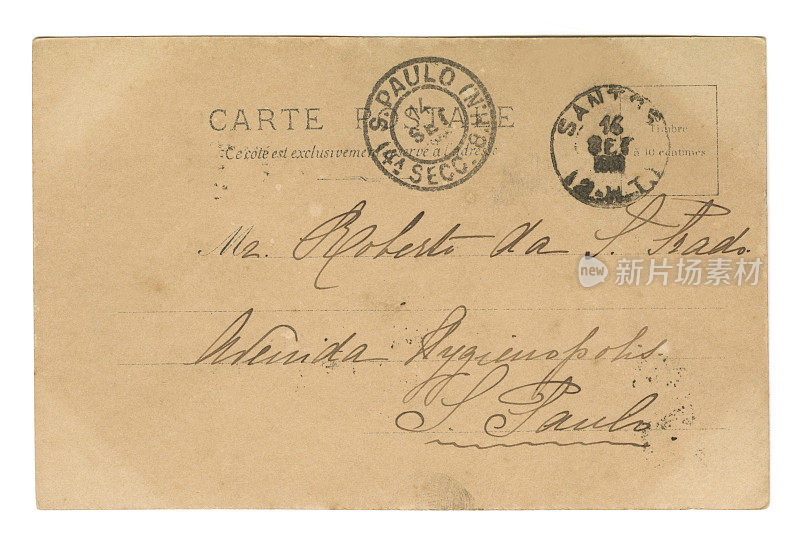 CARTE POSTALE
Ce côté est exclusivement réservé à l'adresse
S. PAULO (NH.
SET
(4A SECC. B)
SANTOS
16
SET
(2
Timbre
à 10 centimes
Mr. Roberto da S. Prado.
Avenida Hygienopolis.
S. Paulo
new 新片场素材